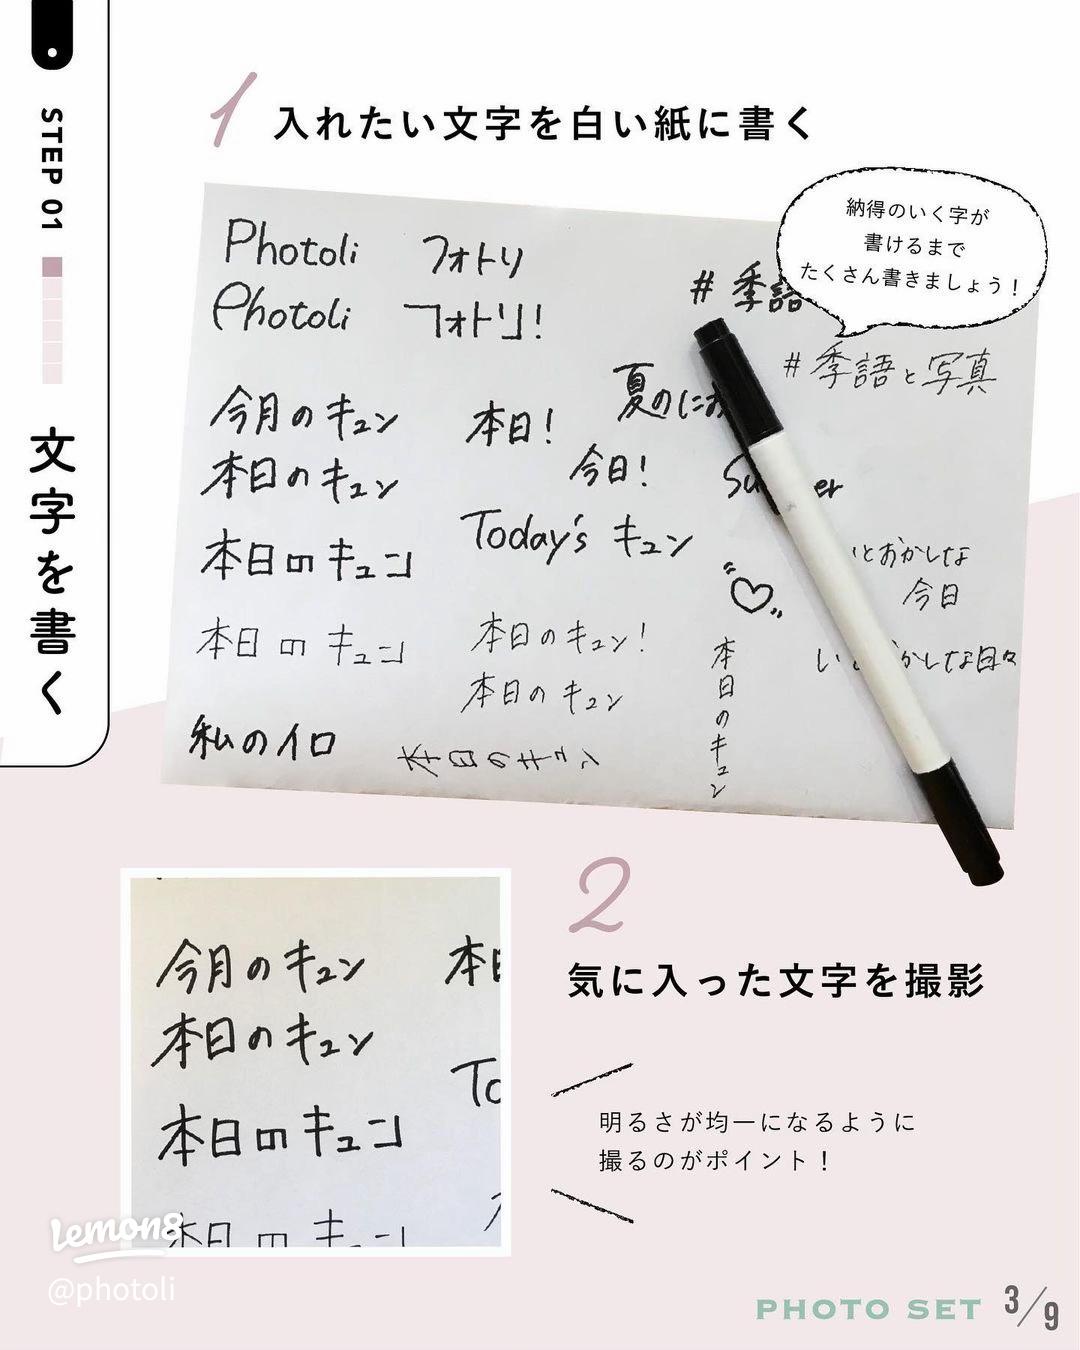 STEP 01
文字を書く
1 入れたい文字を白い紙に書く
納得のいく字が
書けるまで
たくさん書きましょう！
Photoli フォトリ
Photoli フォトリ!
# 季語
# 季語と写真
夏のにお
今月のキュン 本日!
本日のキュン 今日!
Su er
本日のキュン Today's キュン
とおかしな
今日
本日のキュン 本日のキュン!
本日のキュン
い かしな日々
本日のキュン
私のイロ 本日のキュン
2
気に入った文字を撮影
明るさが均一になるように
撮るのがポイント！
今月のキュン 本日
本日のキュン
To
本日のキュン
本日のキュン
Lemon8
@photoli
PHOTO SET 3/9